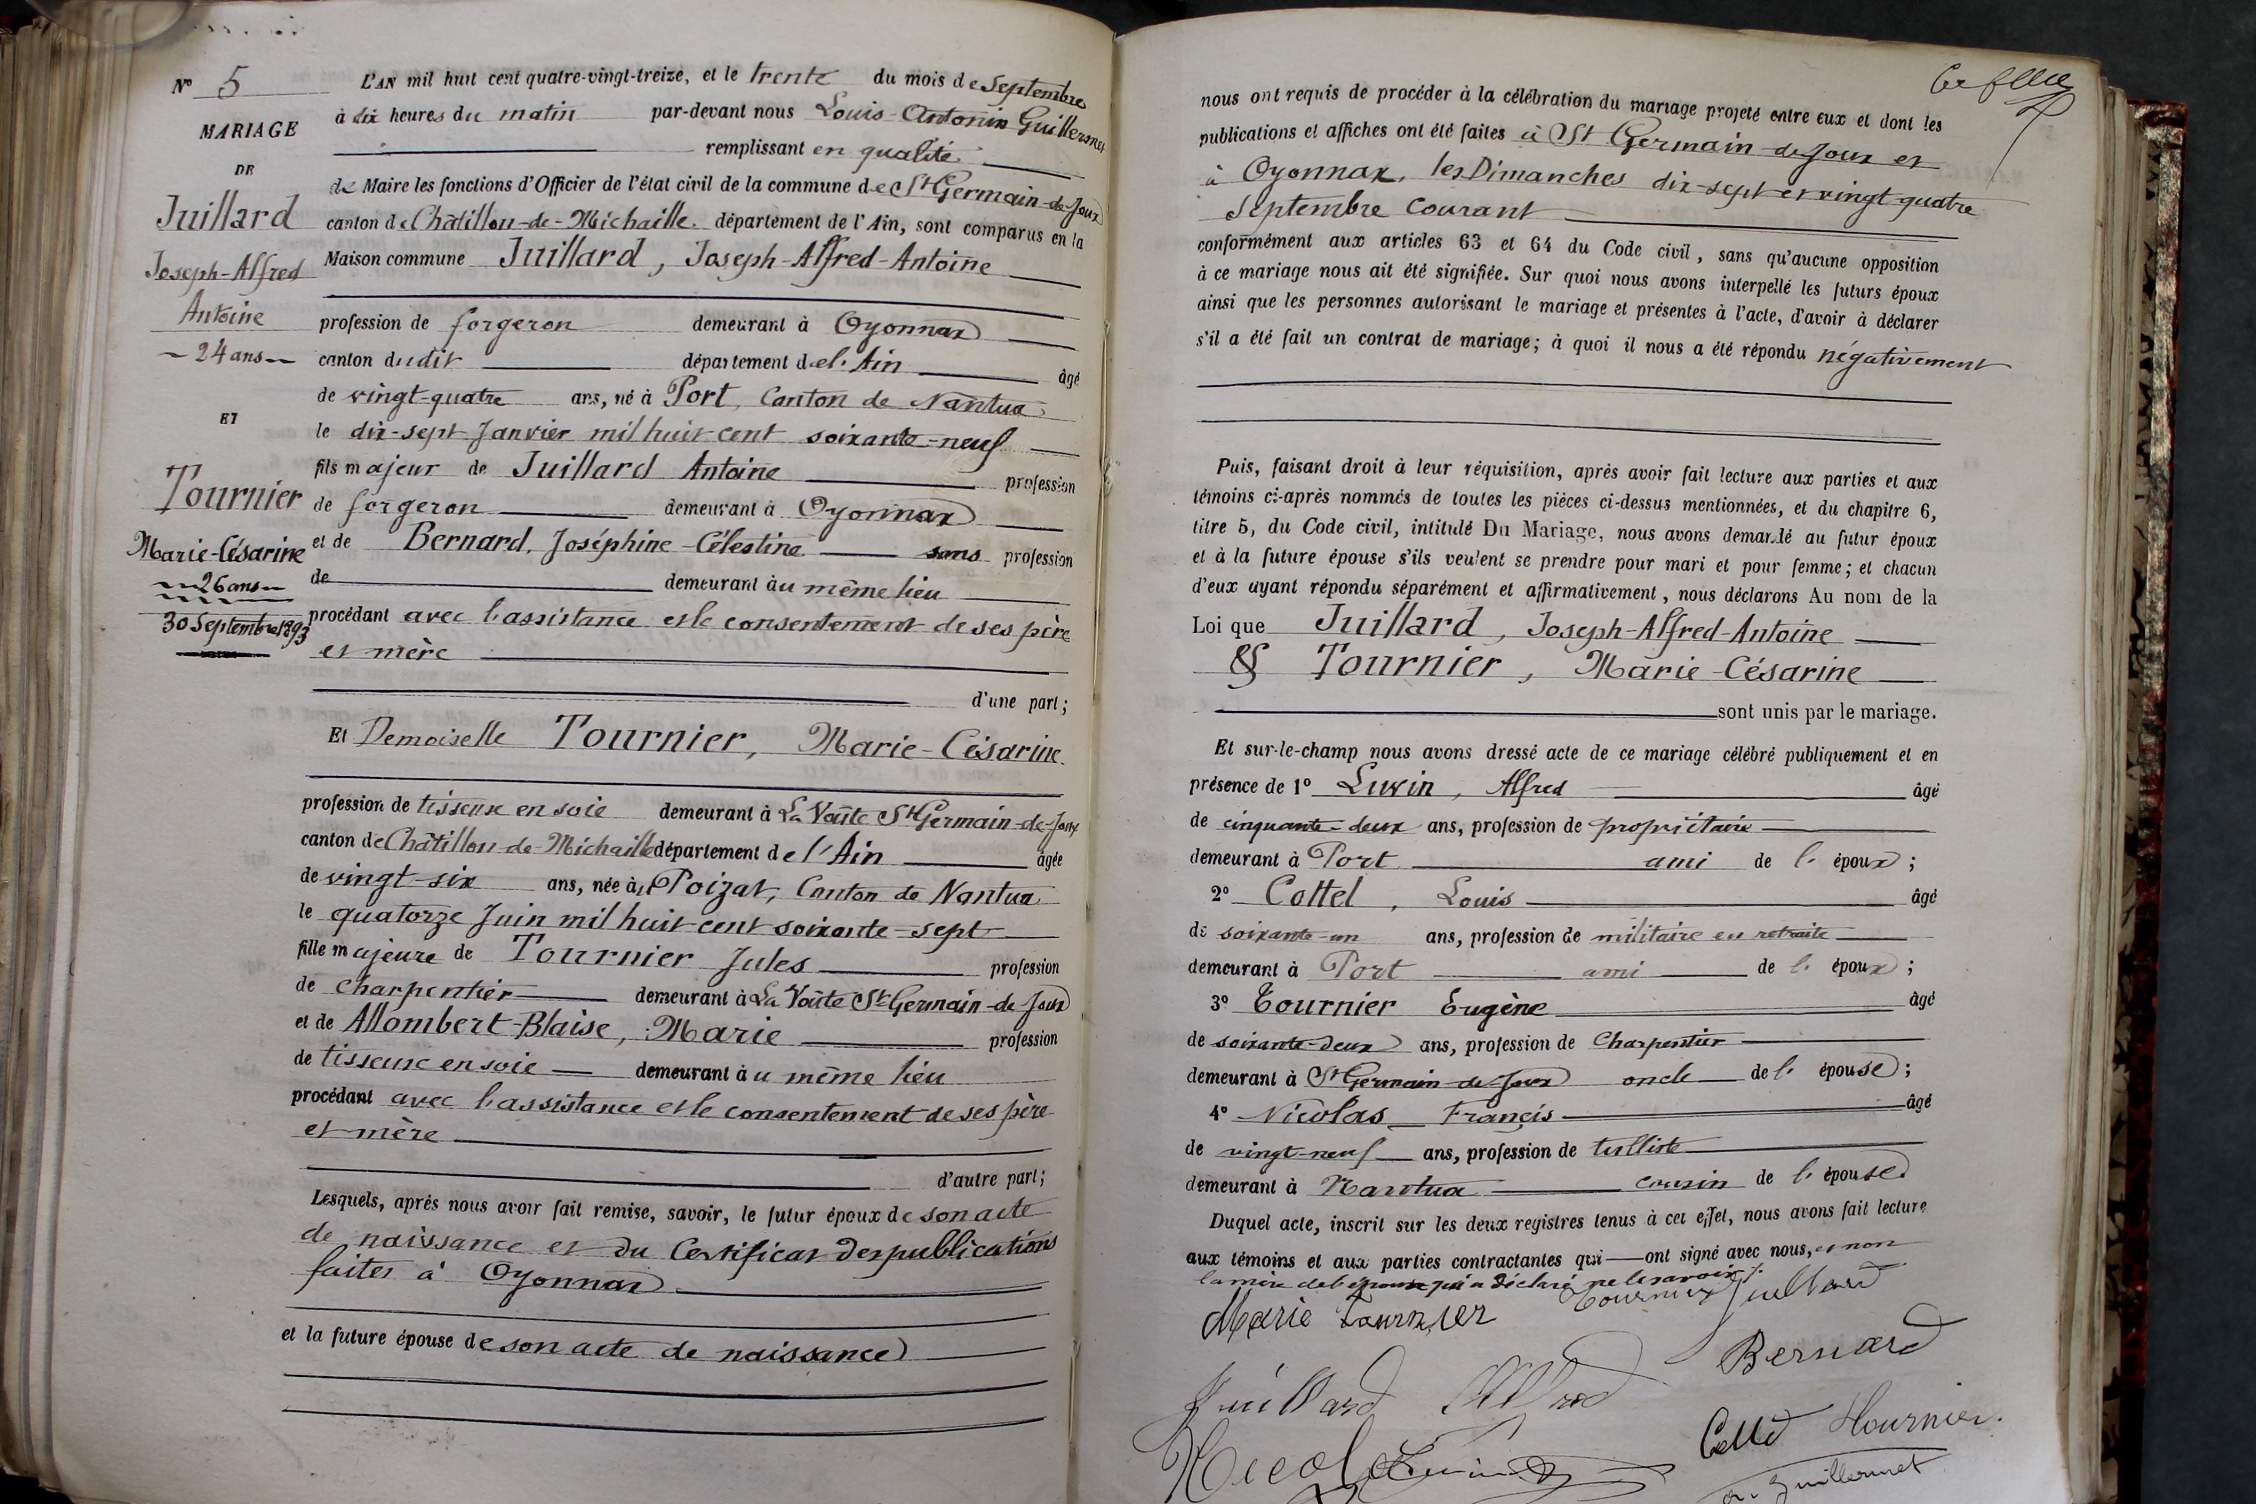 N° 5
MARIAGE
DE
Juillard
Joseph-Alfred
Antoine
24 ans
ET
Tournier
Marie-Césarine
26 ans
30 Septembre 1893
L'AN mil huit cent quatre-vingt-treize, et le trente du mois de Septembre
à dix heures du matin par-devant nous Louis-Antonin Guillermet
remplissant en qualité
de Maire les fonctions d'Officier de l'état civil de la commune de St Germain-de-Joux
canton de Châtillon-de-Michaille département de l'Ain, sont comparus en la
Maison commune Juillard, Joseph-Alfred-Antoine
profession de forgeron demeurant à Oyonnax
canton dudit département de l'Ain âgé
de vingt-quatre ans, né à Port, Canton de Nantua
le dix-sept Janvier mil huit cent soixante-neuf
fils majeur de Juillard Antoine profession
de forgeron demeurant à Oyonnax
et de Bernard, Joséphine-Célestine sans profession
de demeurant au même lieu
procédant avec l'assistance et le consentement de ses père
et mère
d'une part;
Et Demoiselle Tournier, Marie-Césarine
profession de tisseuse en soie demeurant à La Voûte St Germain-de-Joux
canton de Châtillon-de-Michaille département de l'Ain âgée
de vingt-six ans, née au Poizat, Canton de Nantua
le quatorze Juin mil huit cent soixante-sept
fille majeure de Tournier Jules profession
de charpentier demeurant à La Voûte St Germain-de-Joux
et de Allombert-Blaise, Marie profession
de tisseuse en soie demeurant au même lieu
procédant avec l'assistance et le consentement de ses père
et mère
d'autre part;
Lesquels, après nous avoir fait remise, savoir, le futur époux de son acte
de naissance et du Certificat des publications
faites à Oyonnax
et la future épouse de son acte de naissance
nous ont requis de procéder à la célébration du mariage projeté entre eux et dont les
publications et affiches ont été faites à St Germain-de-Joux et
à Oyonnax, les Dimanches dix-sept et vingt-quatre
Septembre courant
conformément aux articles 63 et 64 du Code civil, sans qu'aucune opposition
à ce mariage nous ait été signifiée. Sur quoi nous avons interpellé les futurs époux
ainsi que les personnes autorisant le mariage et présentes à l'acte, d'avoir à déclarer
s'il a été fait un contrat de mariage; à quoi il nous a été répondu négativement
Puis, faisant droit à leur réquisition, après avoir fait lecture aux parties et aux
témoins ci-après nommés de toutes les pièces ci-dessus mentionnées, et du chapitre 6,
titre 5, du Code civil, intitulé Du Mariage, nous avons demandé au futur époux
et à la future épouse s'ils veulent se prendre pour mari et pour femme; et chacun
d'eux ayant répondu séparément et affirmativement, nous déclarons Au nom de la
Loi que Juillard, Joseph-Alfred-Antoine
& Tournier, Marie-Césarine
sont unis par le mariage.
Et sur-le-champ nous avons dressé acte de ce mariage célébré publiquement et en
présence de 1° Luvin, Alfred âgé
de cinquante-deux ans, profession de propriétaire
demeurant à Port ami de l' époux;
2° Cottel, Louis âgé
de soixante-un ans, profession de militaire en retraite
demeurant à Port ami de l' époux;
3° Tournier Eugène âgé
de soixante-deux ans, profession de Charpentier
demeurant à St Germain-de-Joux oncle de l' épouse;
4° Nicolas Francis âgé
de vingt-neuf ans, profession de tulliste
demeurant à Nantua cousin de l' épouse
Duquel acte, inscrit sur les deux registres tenus à cet effet, nous avons fait lecture
aux témoins et aux parties contractantes qui ont signé avec nous, et non
la mère de l'épouse qui a déclaré ne le savoir
Marie Tournier Tournier Juillard
Bernard
Juillard Alfred
Cottel Tournier
Nicolas
Guillermet